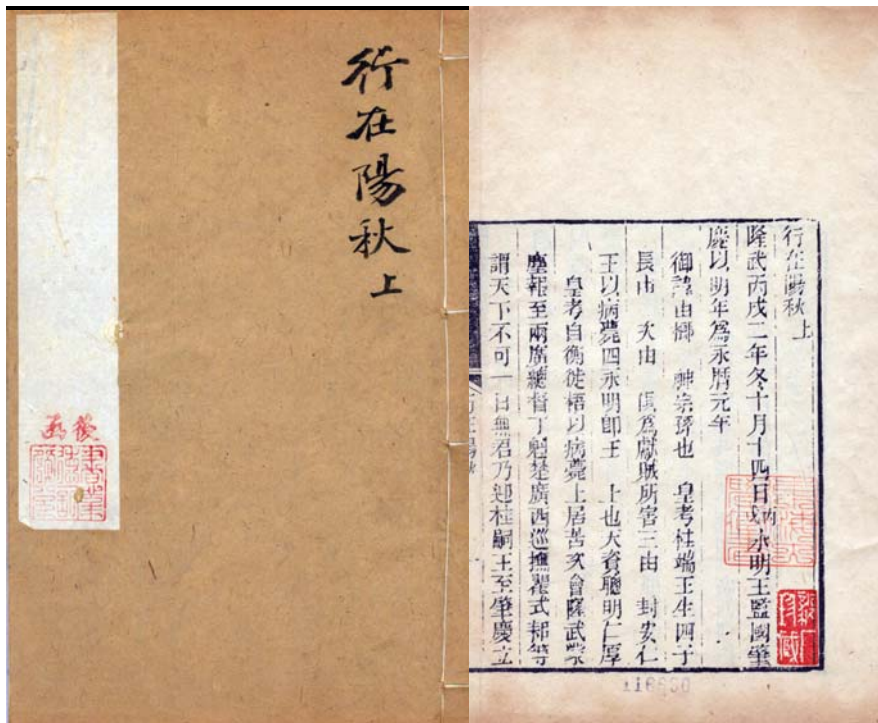 行在陽秋 上
行在陽秋上
隆武丙戌二年冬十月十四日丙戌永明王監國肇
慶以明年爲永曆元年
御諱由榔 神宗孫也 皇考桂端王生四子
長由 次由 俱爲獻賊所害三由 封安仁
王以病薨四永明卽王 上也天資聰明仁厚
皇考自衡徙梧以病薨上居苫次會隆武蒙
塵報至兩廣總督丁魁楚廣西巡撫瞿式耜等
謂天下不可一日無君乃迎桂嗣王至肇慶立
行在陽秋